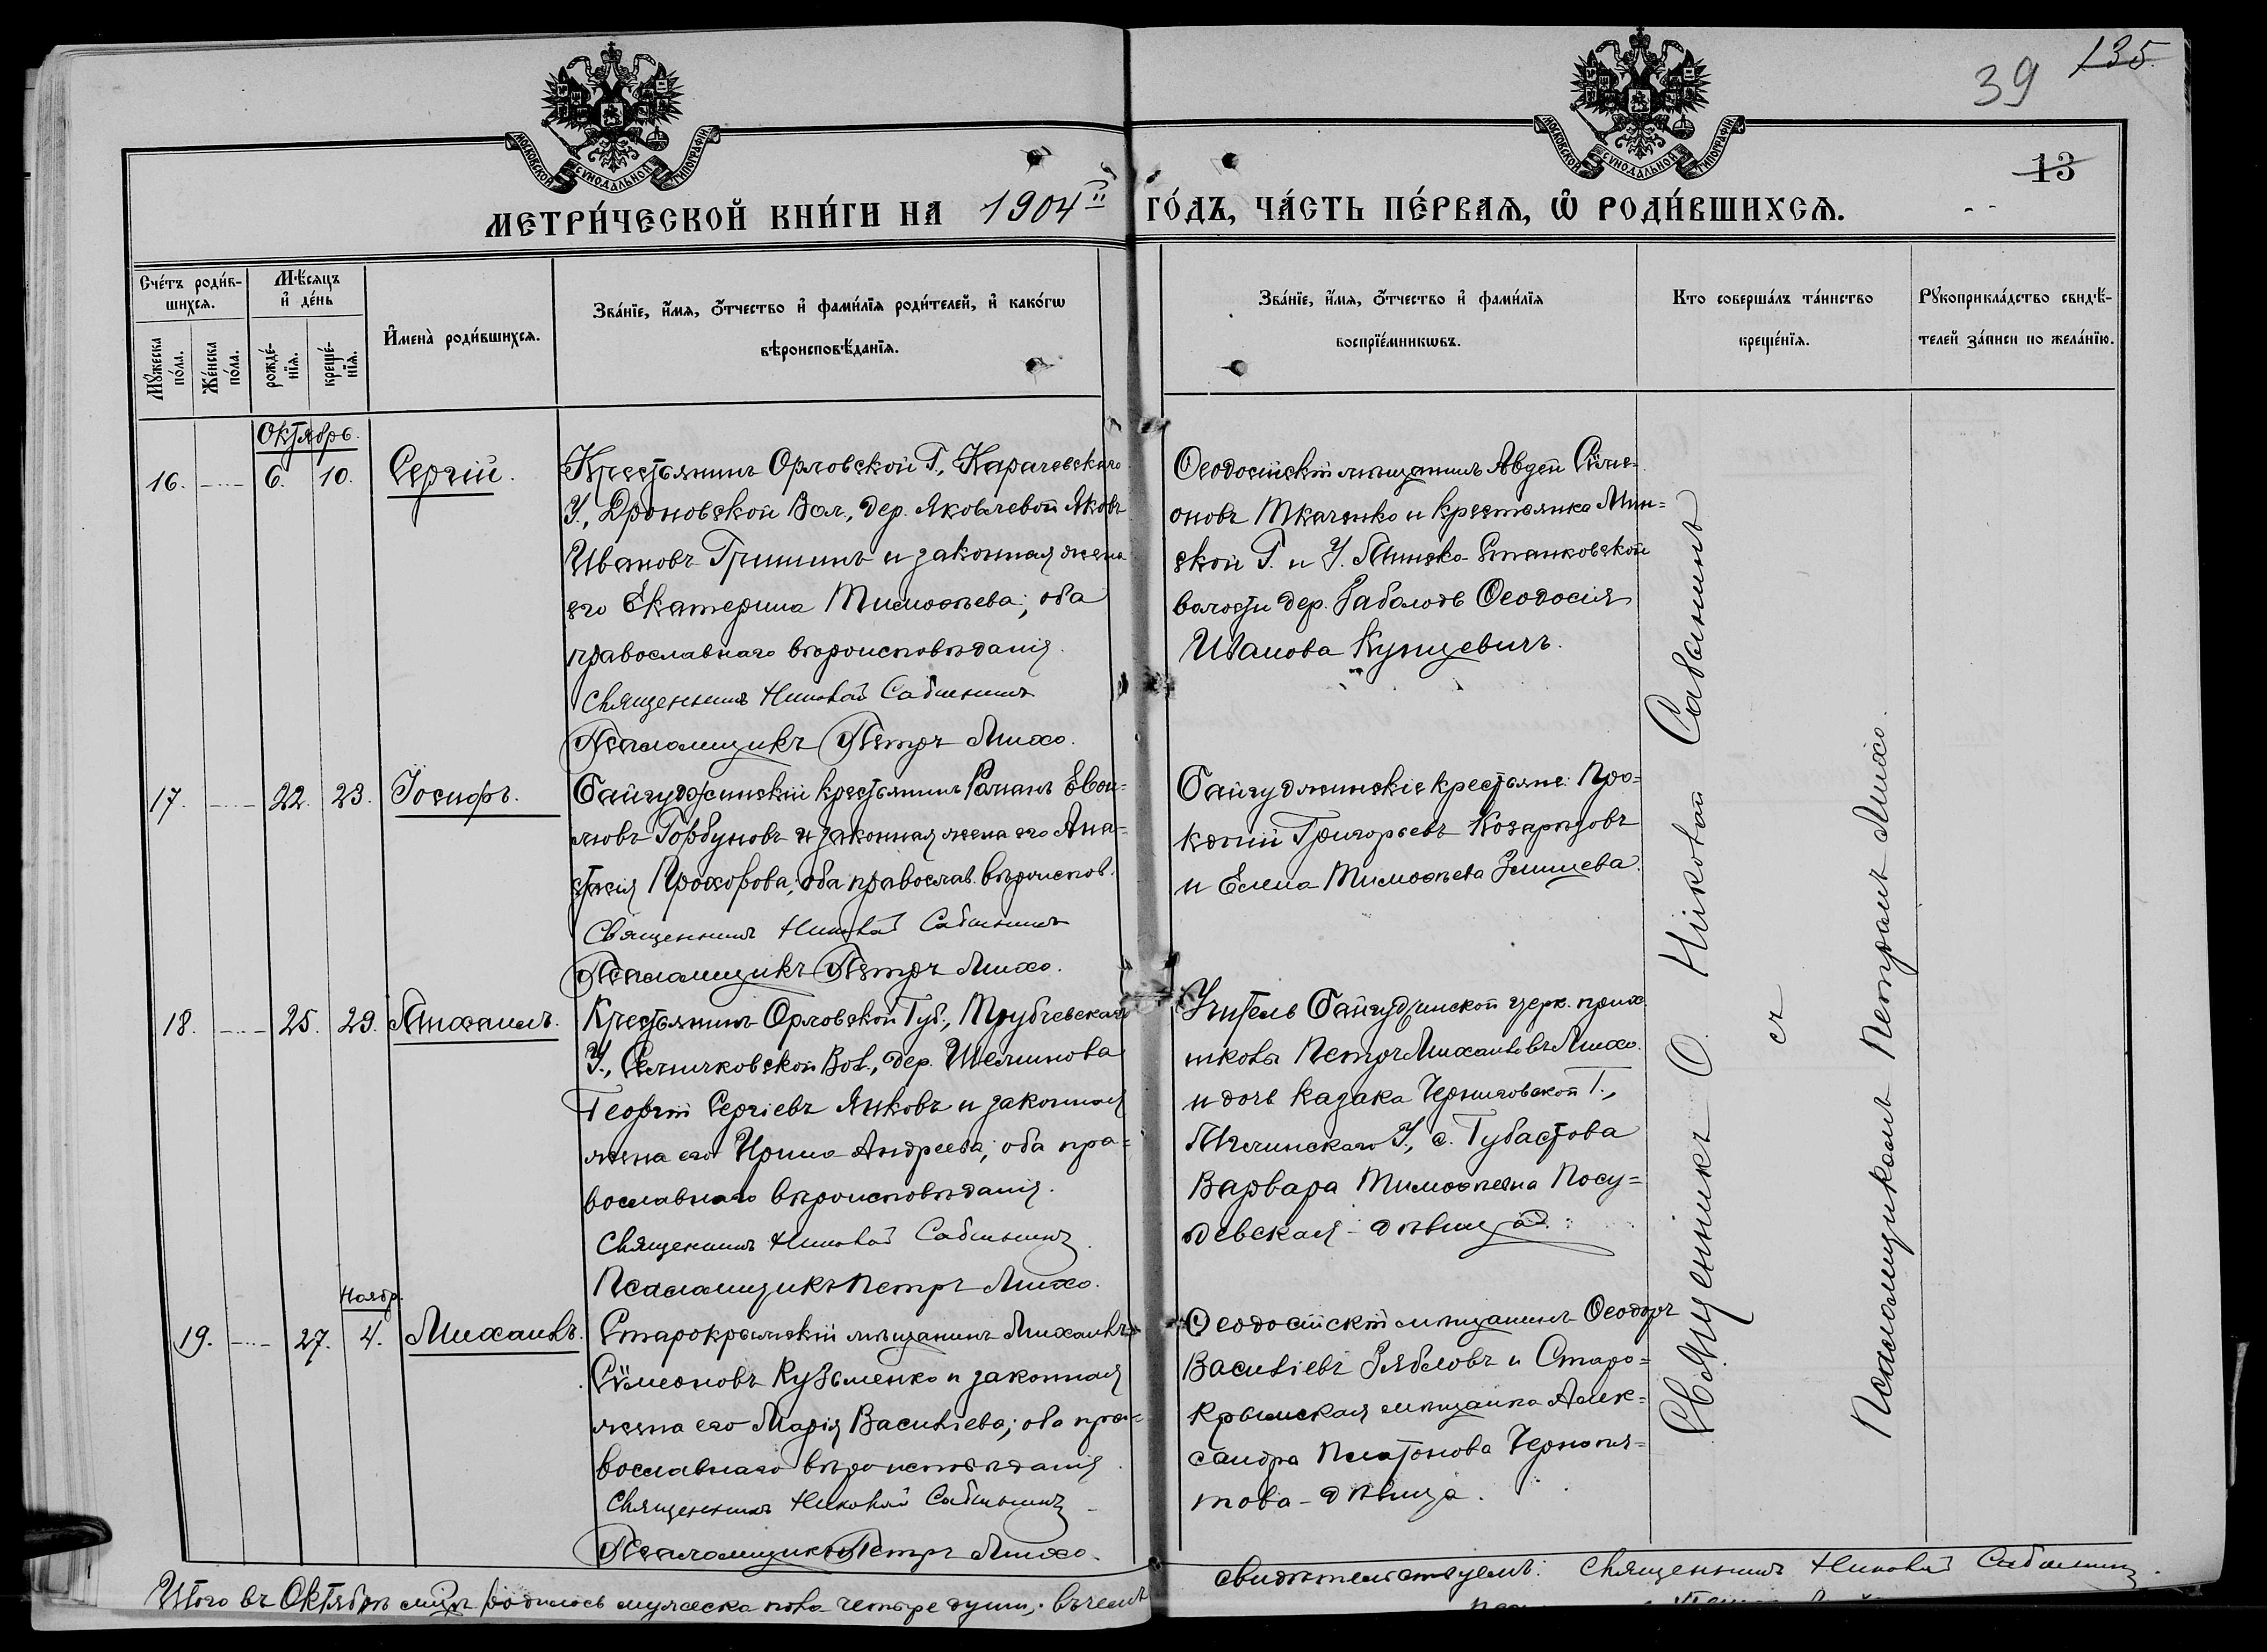 39 135.
13
МОСКОВСКОЙ СУНОДАЛЬНОЙ ТИПОГРАФІИ
МОСКОВСКОЙ СУНОДАЛЬНОЙ ТИПОГРАФІИ
МЕТРИ́ЧЕСКОЙ КНИ́ГИ НА 1904й ГО́ДЪ, ЧА́СТЬ ПЕ́РВАѦ, Ѡ РОДИ́ВШИХСѦ.
Сче́тъ роди́в-
шихсѧ.
Мꙋ́жеска по́ла.
Же́нска по́ла.
Мѣ́сѧцъ
и҆ де́нь
рожде́-
нїѧ.
креще́-
нїѧ.
И҆мена̀ роди́вшихсѧ.
Зва́нїе, и҆́мѧ, ѻ҆́тчество и҆ фами́лїѧ роди́телей, и҆ како́гѡ
вѣроисповѣ́данїѧ.
Зва́нїе, и҆́мѧ, ѻ҆́тчество и҆ фами́лїѧ
воспрїе́мникѡвъ.
Кто соверша́лъ та́инство
креще́нїѧ.
Рꙋкоприкла́дство свидѣ́-
телей за́писи по жела́нїю.
Октябрь.
16. 6. 10. Сергій.
Крестьянинъ Орловской Г., Карачевскаго
У., Дроновской Вол., дер. Яковлевой Яковъ
Ивановъ Гришинъ и законная жена
его Екатерина Тимоѳѣева; оба
православнаго вѣроисповѣданія.
Священникъ Николай Сабынинъ
Псаломщикъ Петръ Лихо.
Ѳеодосійскій мѣщанинъ Авдей Симе-
оновъ Ткаченко и крестьянка Мин-
ской Г. и У. Станковской
волости дер. Заболоть Ѳеодосія
Иванова Купцевичъ.
17. 22. 23. Іосифъ.
Байгуджинскій крестьянинъ Романъ
Горбуновъ и законная жена его Ана-
стасія Прохорова; оба православ. вѣроиспов.
Священникъ Николай Сабынинъ
Псаломщикъ Петръ Лихо.
Байгуджинскіе крестьяне: Про-
копій Григорьевъ Козарезовъ
и Елена Тимоѳѣева
18. 25. 29. Михаилъ.
Крестьянинъ Орловской Губ., Трубчевскаго
У., Вол., дер.
Георгій Сергіевъ Янковъ и законная
жена его Ирина Андреева; оба пра-
вославнаго вѣроисповѣданія.
Священникъ Николай Сабынинъ
Псаломщикъ Петръ Лихо.
Учитель Байгуджинской церк. прих.
школы Петръ Михаиловъ Лихо.
и дочь казака Черниговской Г.,
Мглинскаго У., с.
Варвара Тимоѳѣевна Посу-
девская - дѣвица.
Ноябр.
19. 27. 4. Михаилъ.
Старокрымскій мѣщанинъ Михаилъ
Симеоновъ Кузьменко и законная
жена его Марія Василіева; оба пра-
вославнаго вѣроисповѣданія
Священникъ Николай Сабынинъ
Псаломщикъ Петръ Лихо.
Ѳеодосійскій мѣщанинъ Ѳеодоръ
Василіевъ Зябловъ и Старо-
крымская мѣщанка Алек-
сандра Платонова Чернопя-
това - дѣвица.
Священникъ О. Николай Сабынинъ
съ
Псаломщикомъ Петромъ Лихо.
Итого въ Октябрѣ мцѣ родилось мужеска пола четыре души; въ чемъ
свидѣтельствуемъ: Священникъ Николай Сабынинъ.